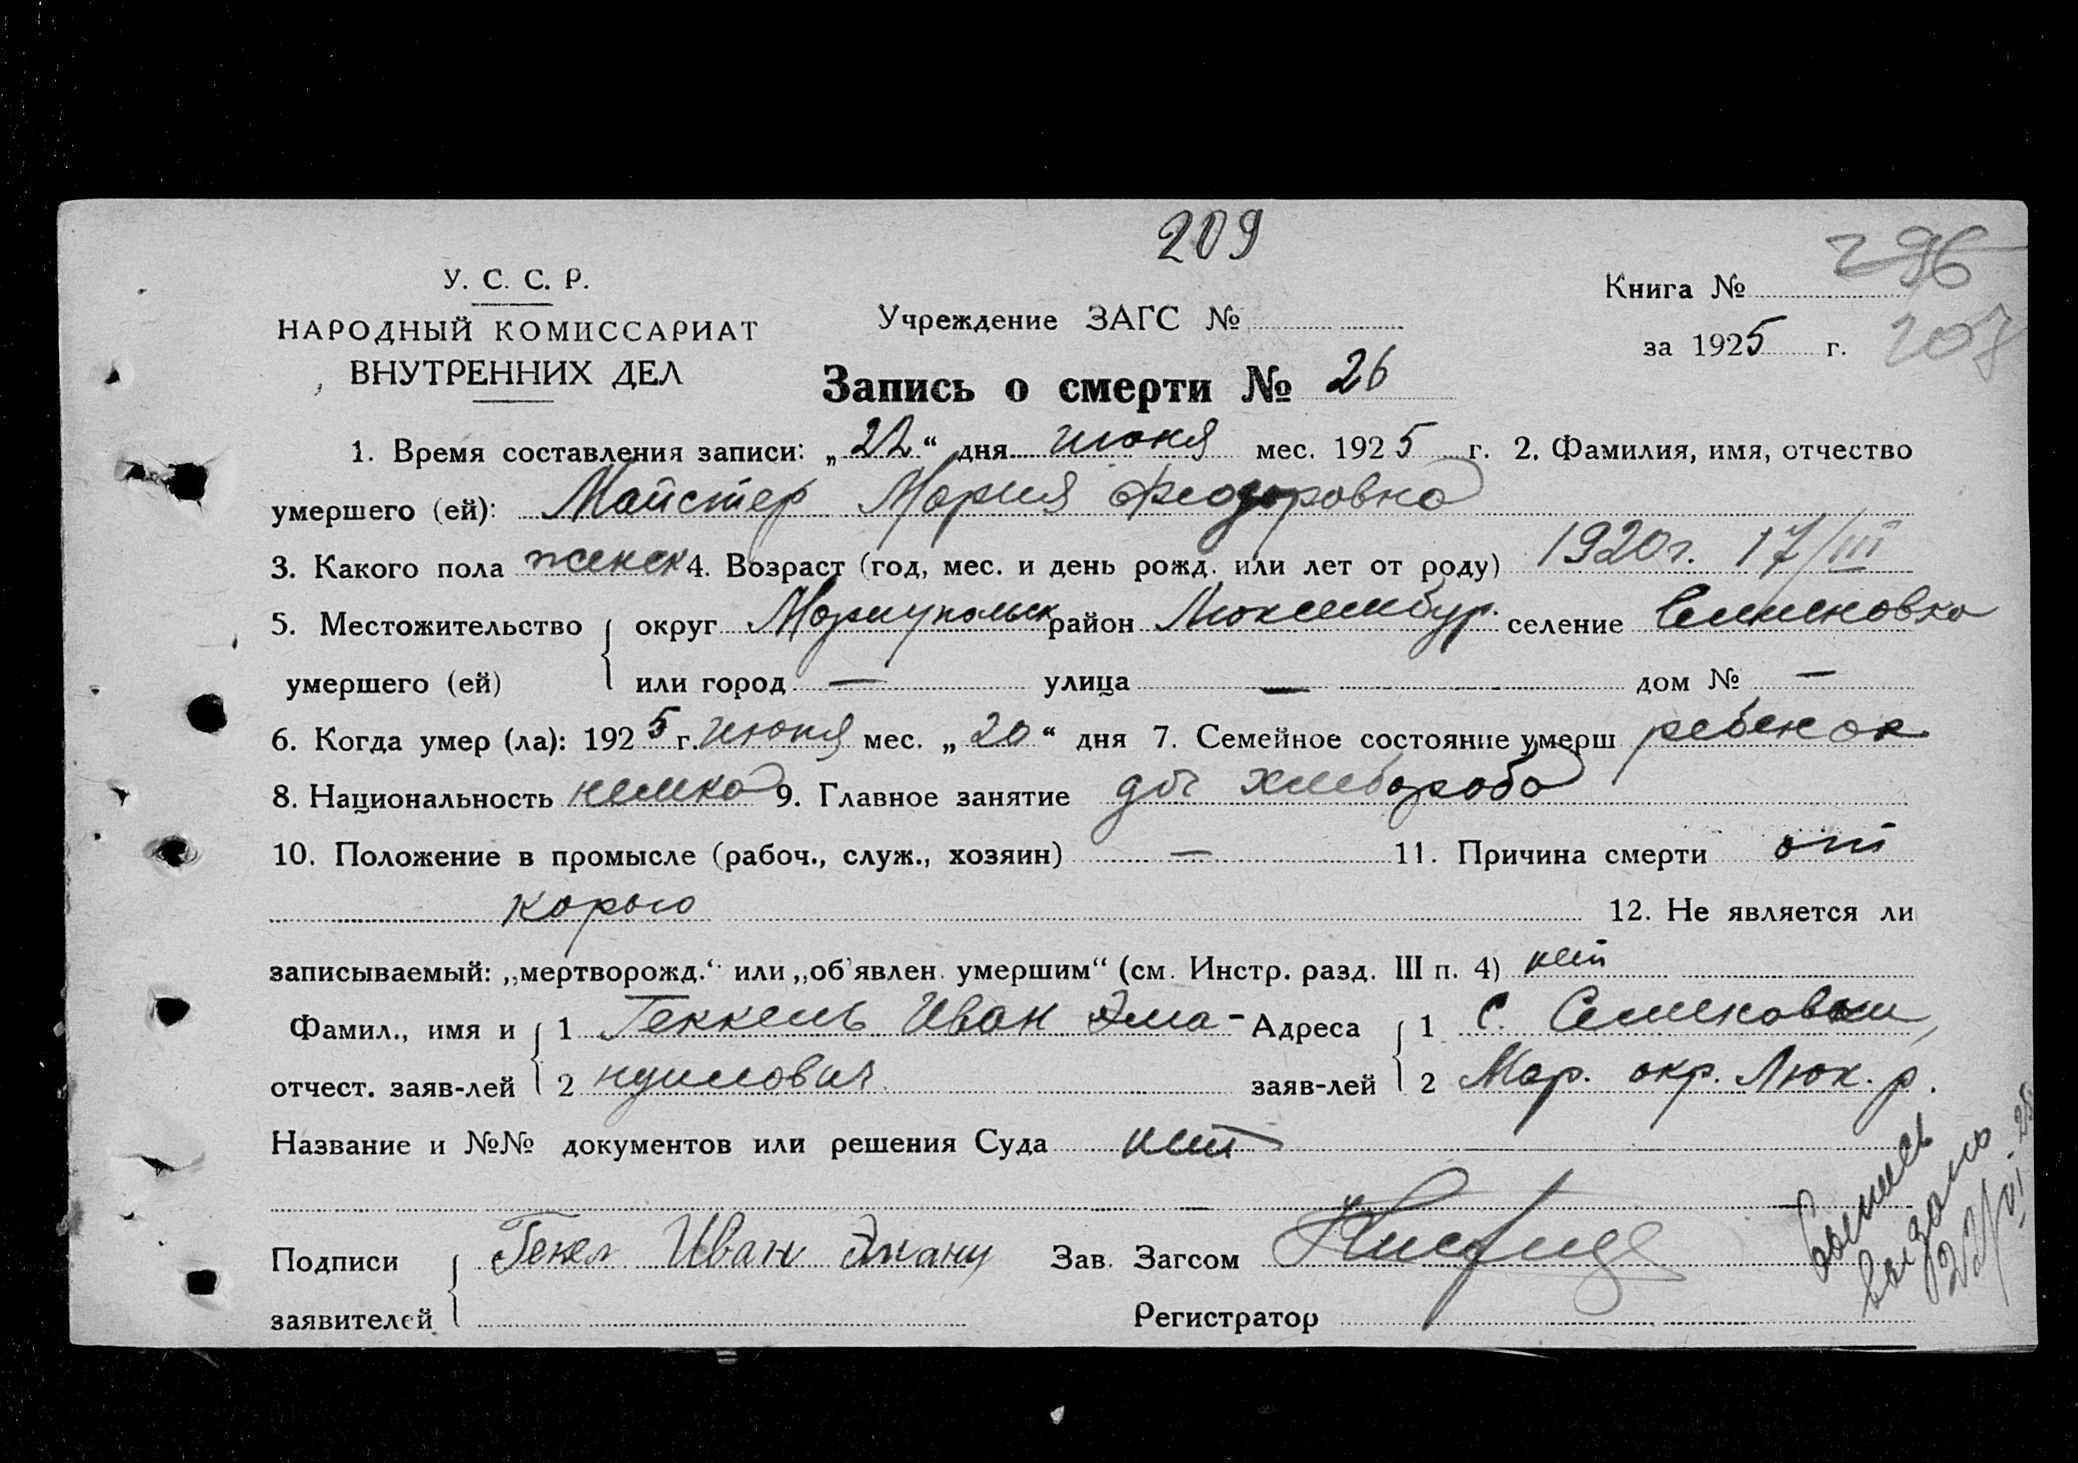 209
У. С. С. Р.
НАРОДНЫЙ КОМИССАРИАТ
ВНУТРЕННИХ ДЕЛ
Учреждение ЗАГС №
Книга № 296
за 1925 г. 207
Запись о смерти № 26
1. Время составления записи: „22“ дня июня мес. 1925 г. 2. Фамилия, имя, отчество
умершего (ей): Майстер Мария Феодоровна
3. Какого пола женск 4. Возраст (год, мес. и день рожд. или лет от роду) 1920г. 17/III
5. Местожительство округ Мариупольск район Люксембур. селение Семеновка
умершего (ей) или город — улица — дом № —
6. Когда умер (ла): 1925 г. июня мес. „20“ дня 7. Семейное состояние умерш ребенок
8. Национальность немка 9. Главное занятие доч хлебороба
10. Положение в промысле (рабоч., служ., хозяин) — 11. Причина смерти от
корью 12. Не является ли
записываемый: „мертворожд.“ или „об'явлен умершим“ (см. Инстр. разд. III п. 4) нет
Фамил., имя и 1 Геккель Иван Эма- Адреса 1 С. Семеновки,
отчест. заяв-лей 2 нуилович заяв-лей 2 Мар. окр. Люк. р.
Название и №№ документов или решения Суда нет
Подписи Гекел Иван Эману Зав. Загсом
заявителей Регистратор
Выпись
выдана
22/VI-25